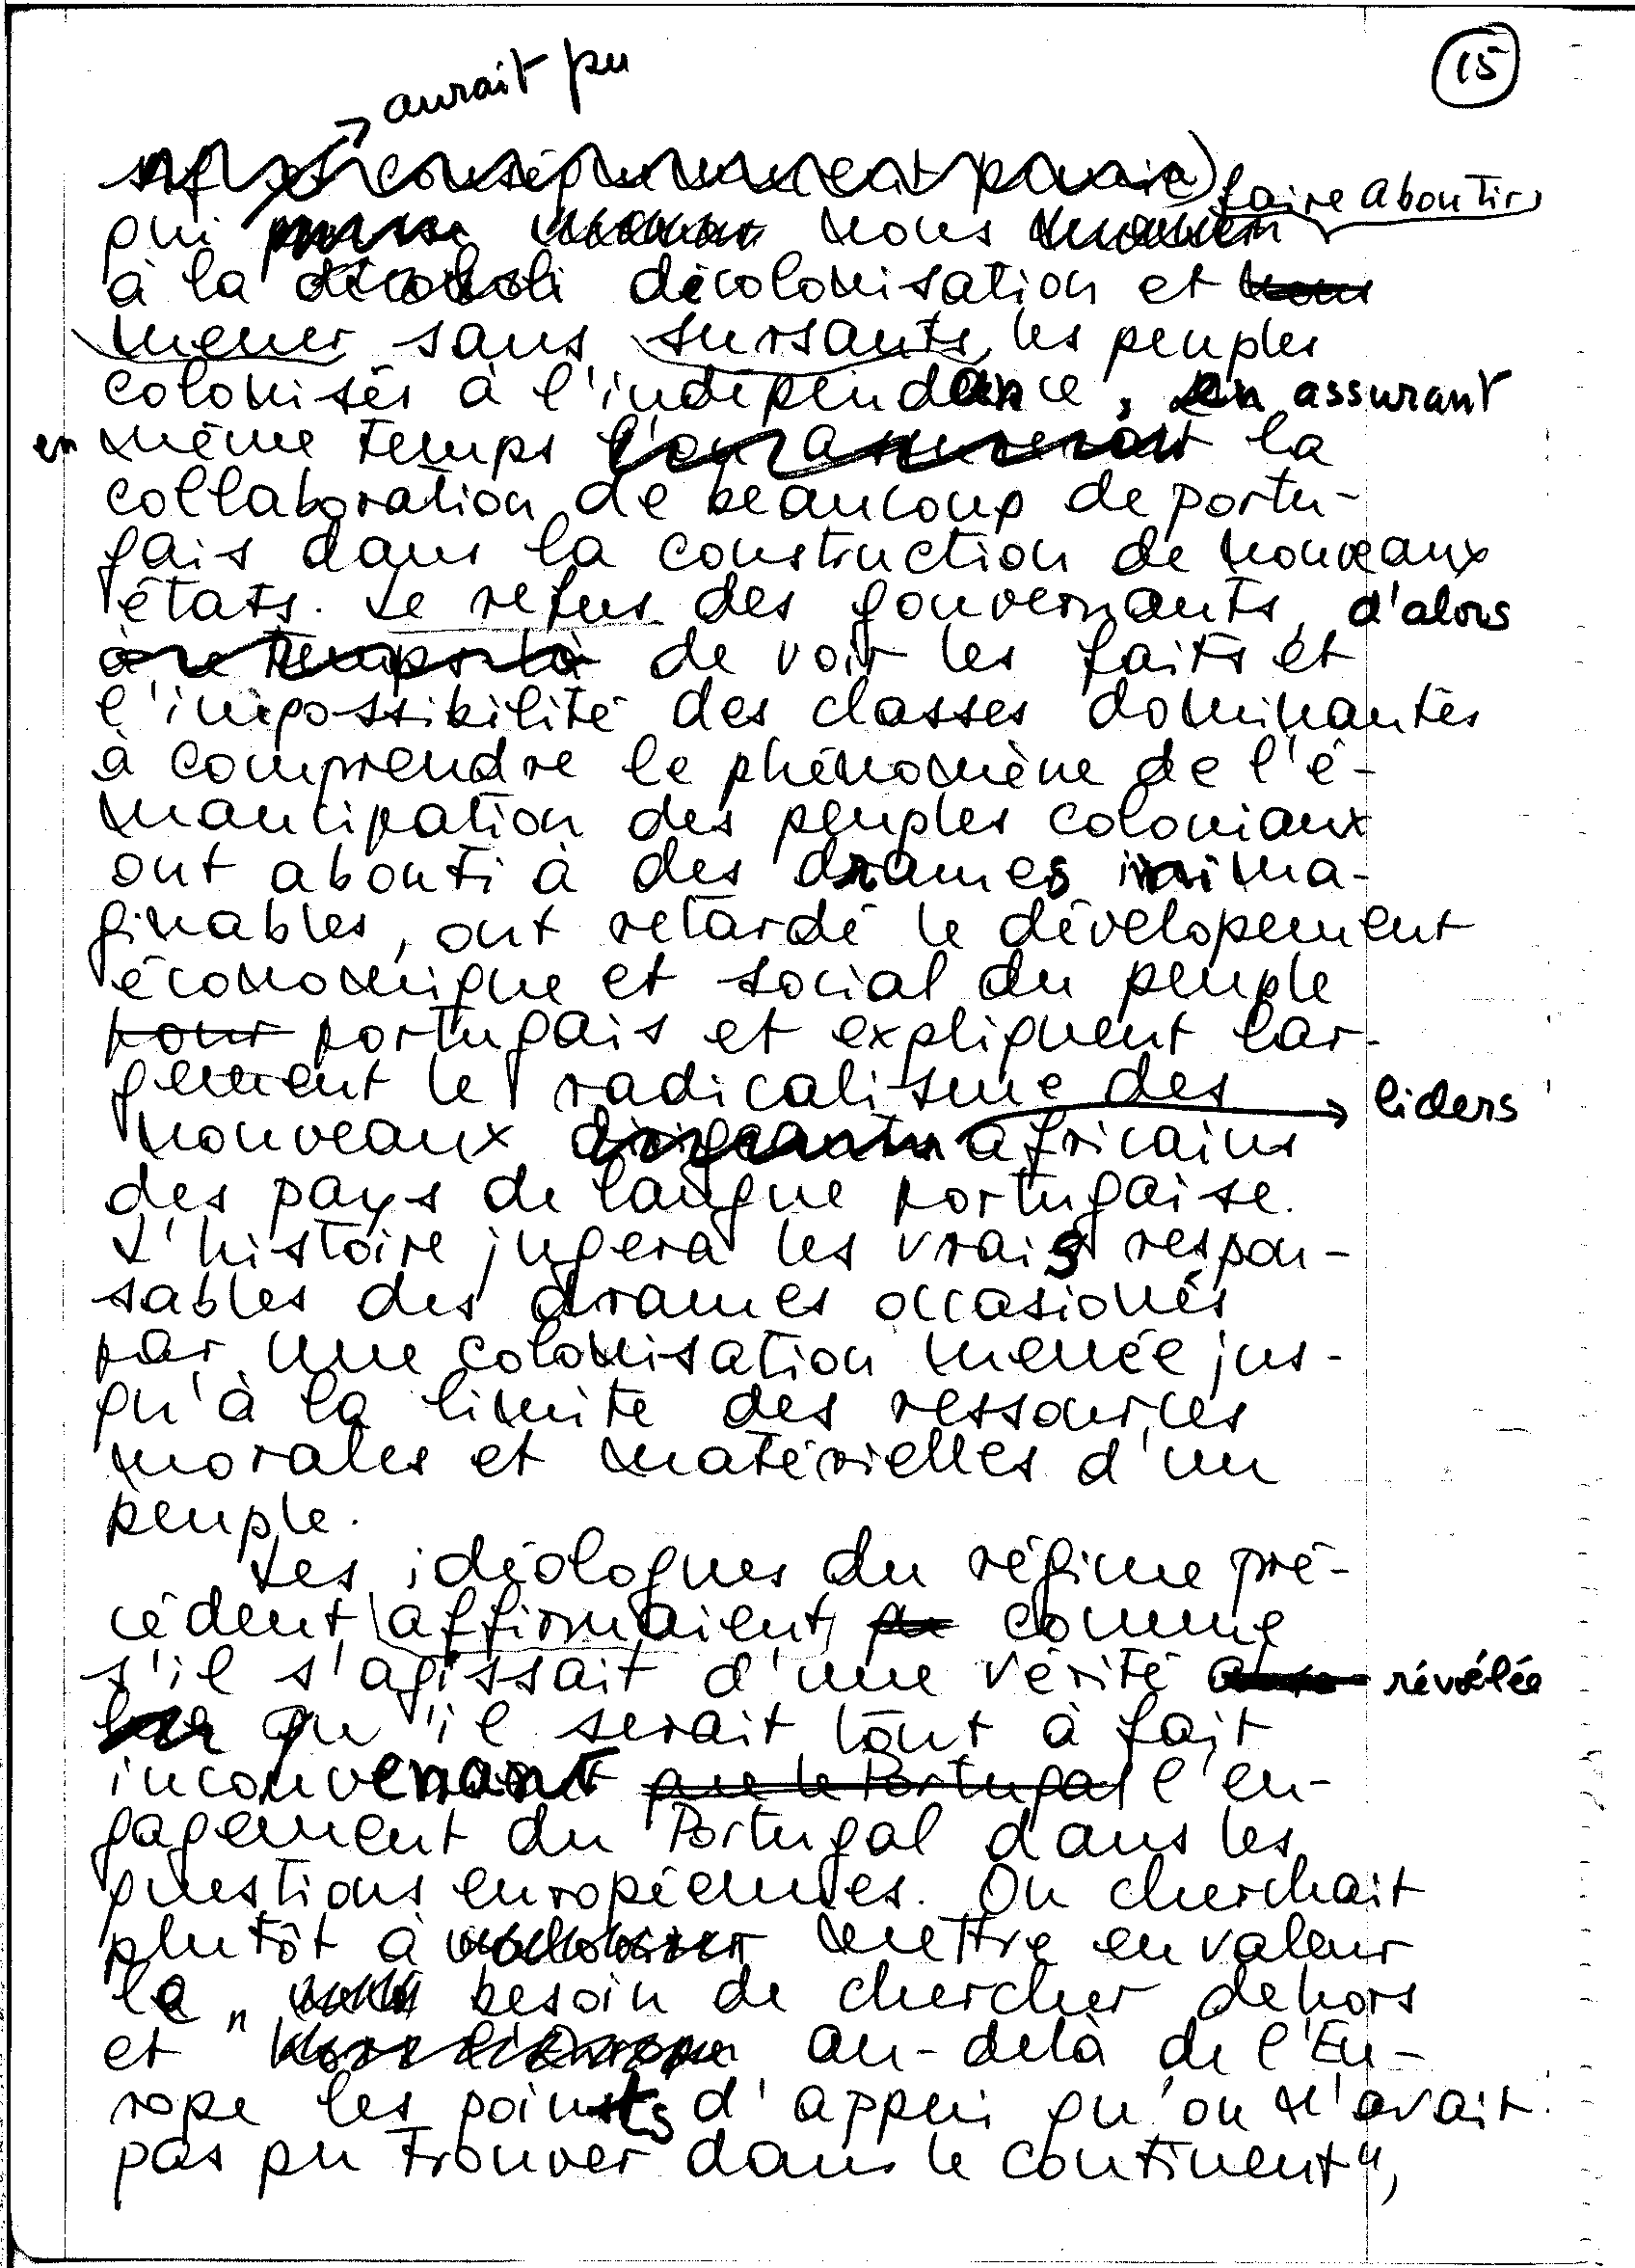 15
aurait pu
faire aboutir
qui nous
à la décolonisation et
mener sans sursauts, les peuples
colonisés à l'indépendance, en assurant
en même temps la
collaboration de beaucoup de portu-
gais dans la construction de nouveaux
états. Le refus des gouvernants d'alors
de voir les faits et
l'impossibilité des classes dominantes
à comprendre le phénomène de l'é-
mancipation des peuples coloniaux
ont abouti à des drames inima-
ginables, ont retardé le dévelopement
économique et social du peuple
pour portugais et expliquent lar-
gement le radicalisme des
liders
nouveaux dirigeants africains
des pays de langue portugaise.
L'histoire jugera les vrais respon-
sables des drames occasionés
par une colonisation menée jus-
qu'à la limite des ressources
morales et matérielles d'un
peuple.
Les idéologues du régime pré-
cédent affirmaient comme
s'il s'agissait d'une vérité révélée
qu'il serait tout à fait
inconvenant que le Portugal l'en-
gagement du Portugal dans les
questions européennes. On cherchait
plutôt à mettre en valeur
le " besoin de chercher dehors
et au-delà de l'Eu-
rope les points d'appui qu'on n'avait
pas pu trouver dans le continent",